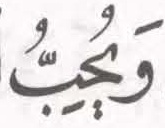 وَيُحِبُّ